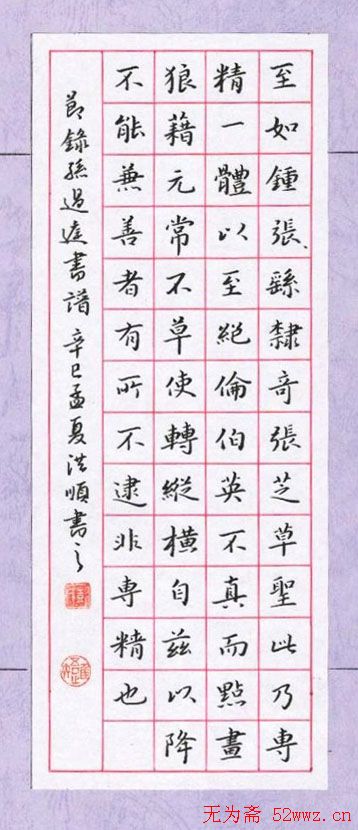 至如鍾張、繇隸奇張芝草聖此乃專
精一體以至絕倫伯英不真而點畫
狼藉元常不草使轉縱橫自茲以降
不能兼善者有所不逮非專精也
節錄孫過庭書譜 辛巳孟夏洪順書之
无为斋 52wwz.cn